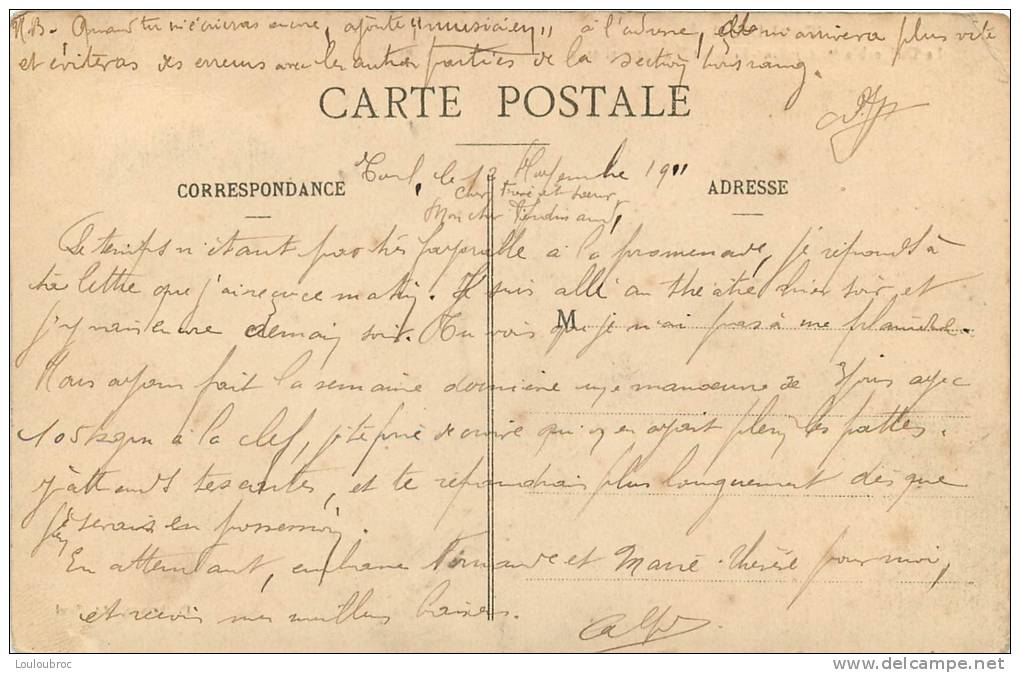 N.B. Quand tu m'écriras encore, ajoute "musicien" à l'adresse, elle m'arrivera plus vite
et éviteras des erreurs avec les autres parties de la section hors rang.
CARTE POSTALE
Toul, le 12 Novembre 1911
CORRESPONDANCE
ADRESSE
Cher frère et sœur
Mon cher Ferdinand,
Le temps n'étant pas très favorable à la promenade, je réponds à
ta lettre que j'ai reçue ce matin. Je suis allé au théâtre hier soir et
j'y vais encore demain soir. Tu vois que je n'ai pas à me plaindre.
M
Nous avons fait la semaine dernière une manœuvre de jours avec
105 kgm à la clef, je te prie de croire qu'on en avait plein les pattes.
J'attends tes cartes, et te répondrais plus longuement dès que
j'en serais en possession.
En attendant, embrasse Fernande et Marie-Thérèse pour moi,
et reçois mes meilleurs baisers.
Louloubroc
http://www.delcampe.net